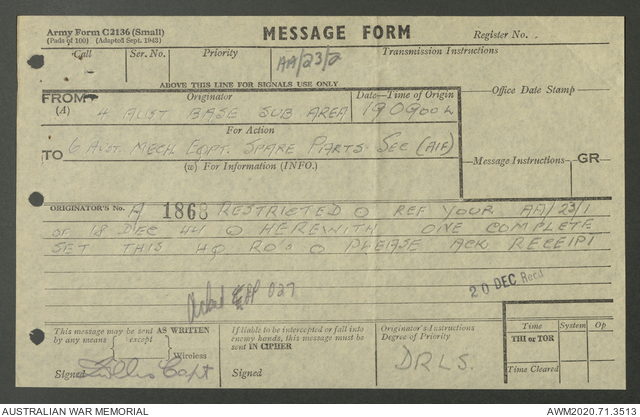 Army Form C2136 (Small)
(Pads of 100) (Adapted Sept. 1943)
MESSAGE FORM
Register No.
Call Ser. No. Priority Transmission Instructions
AA/23/2
ABOVE THIS LINE FOR SIGNALS USE ONLY
FROM (A) Originator Date-Time of Origin Office Date Stamp
4 AUST BASE SUB AREA 190900L
For Action
TO 6 AUST. MECH EQPT. SPARE PARTS SEC (AIF)
(w) For Information (INFO.) Message Instructions GR
ORIGINATOR'S No. A 1868 RESTRICTED O REF YOUR AA/23/1
OF 18 DEC 44 O HEREWITH ONE COMPLETE
SET THIS HQ RO'S O PLEASE ACK RECEIPT
027
20 DEC Recd
This message may be sent AS WRITTEN
by any means except Wireless
Signed Capt
If liable to be intercepted or fall into
enemy hands, this message must be
sent IN CIPHER
Signed
Originator's Instructions
Degree of Priority
D.R.L.S.
Time System Op
THI or TOR
Time Cleared
AUSTRALIAN WAR MEMORIAL AWM2020.71.3513